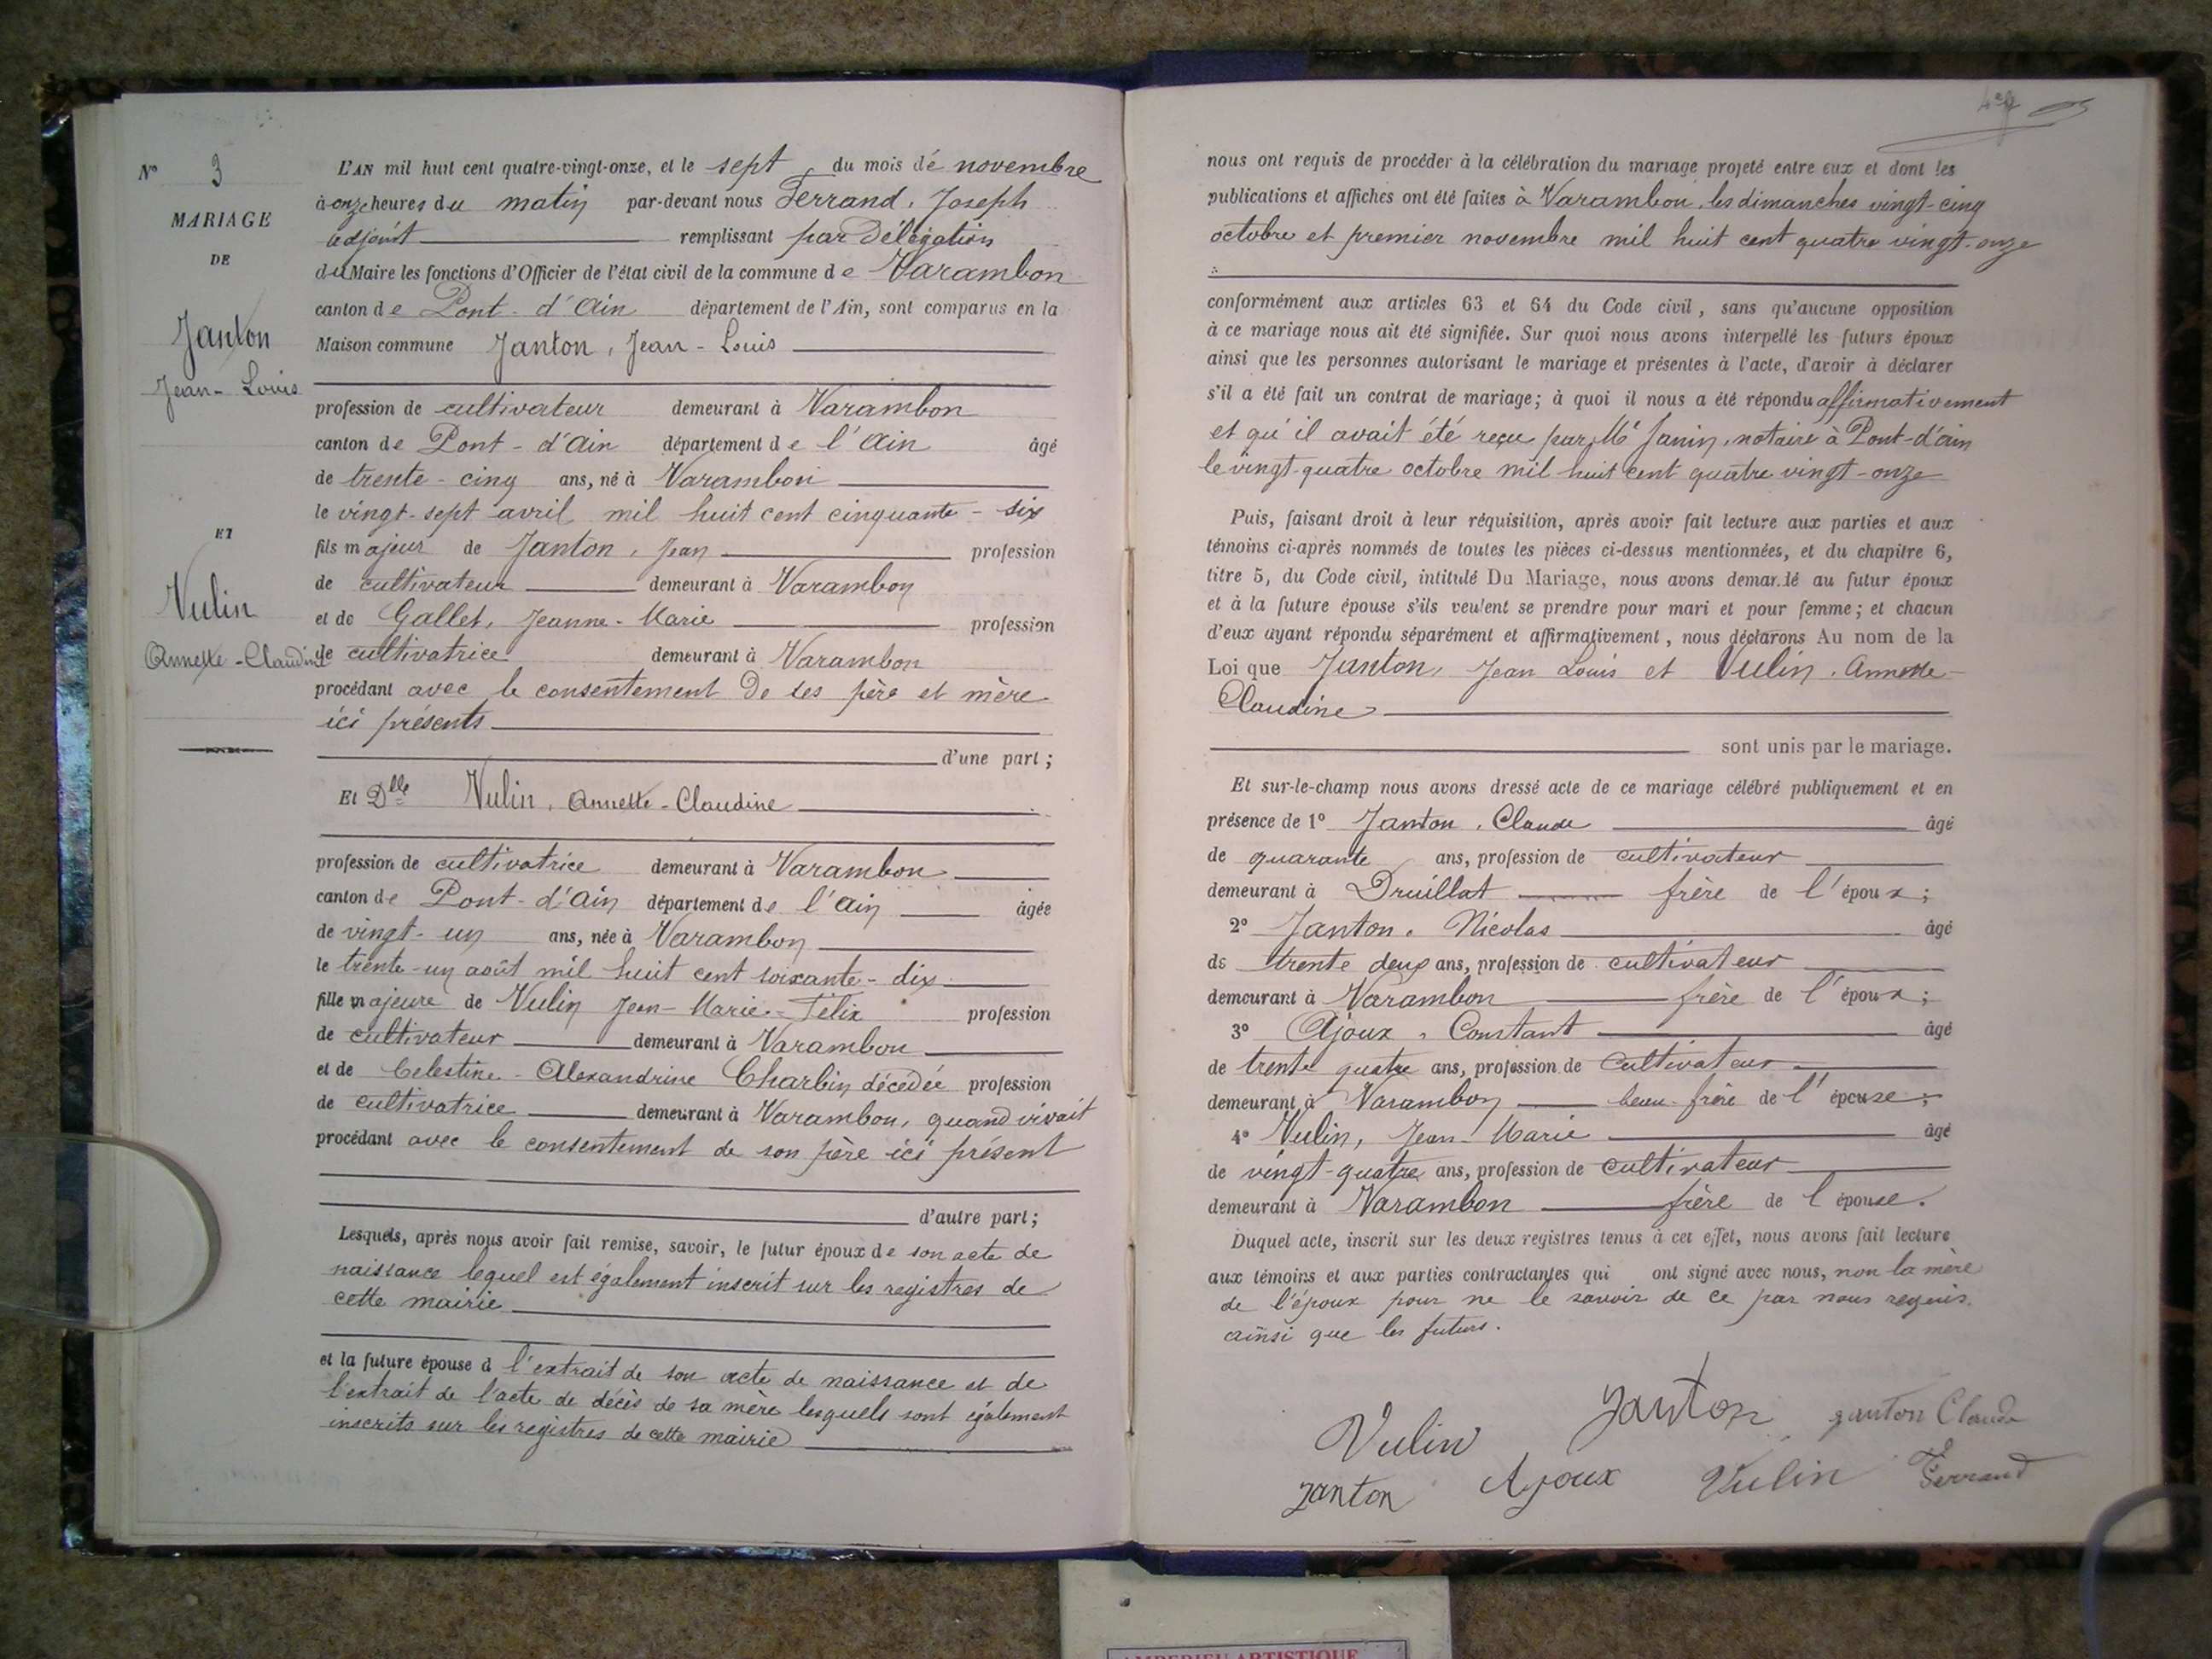 N° 3
MARIAGE
DE
Janton
Jean-Louis
ET
Vulin
Annette-Claudine
L'AN mil huit cent quatre-vingt-onze, et le sept du mois de novembre
à onze heures du matin par-devant nous Ferrand, Joseph
adjoint remplissant par Délégation
du Maire les fonctions d'Officier de l'état civil de la commune de Varambon
canton de Pont-d'Ain département de l'Ain, sont comparus en la
Maison commune Janton, Jean-Louis
profession de cultivateur demeurant à Varambon
canton de Pont-d'Ain département de l'Ain âgé
de trente-cinq ans, né à Varambon
le vingt-sept avril mil huit cent cinquante-six
fils majeur de Janton, Jean profession
de cultivateur demeurant à Varambon
et de Gallet, Jeanne-Marie profession
de cultivatrice demeurant à Varambon
procédant avec le consentement de ses père et mère
ici présents
d'une part ;
Et Dlle Vulin, Annette-Claudine
profession de cultivatrice demeurant à Varambon
canton de Pont-d'Ain département de l'Ain âgée
de vingt-un ans, née à Varambon
le trente-un août mil huit cent soixante-dix
fille majeure de Vulin Jean-Marie-Félix profession
de cultivateur demeurant à Varambon
et de Celestine-Alexandrine Charbin décédée profession
de cultivatrice demeurant à Varambon, quand vivait
procédant avec le consentement de son père ici présent
d'autre part ;
Lesquels, après nous avoir fait remise, savoir, le futur époux de son acte de
naissance lequel est également inscrit sur les registres de
cette mairie
et la future épouse d l'extrait de son acte de naissance et de
l'extrait de l'acte de décès de sa mère lesquels sont également
inscrits sur les registres de cette mairie
nous ont requis de procéder à la célébration du mariage projeté entre eux et dont les
publications et affiches ont été faites à Varambon, les dimanches vingt-cinq
octobre et premier novembre mil huit cent quatre vingt-onze
conformément aux articles 63 et 64 du Code civil, sans qu'aucune opposition
à ce mariage nous ait été signifiée. Sur quoi nous avons interpellé les futurs époux
ainsi que les personnes autorisant le mariage et présentes à l'acte, d'avoir à déclarer
s'il a été fait un contrat de mariage ; à quoi il nous a été répondu affirmativement
et qu'il avait été reçu par Me Janin, notaire à Pont-d'ain
le vingt-quatre octobre mil huit cent quatre vingt-onze
Puis, faisant droit à leur réquisition, après avoir fait lecture aux parties et aux
témoins ci-après nommés de toutes les pièces ci-dessus mentionnées, et du chapitre 6,
titre 5, du Code civil, intitulé Du Mariage, nous avons demandé au futur époux
et à la future épouse s'ils veulent se prendre pour mari et pour femme ; et chacun
d'eux ayant répondu séparément et affirmativement, nous déclarons Au nom de la
Loi que Janton, Jean Louis et Vulin, Annette-
Claudine
sont unis par le mariage.
Et sur-le-champ nous avons dressé acte de ce mariage célébré publiquement et en
présence de 1° Janton, Claude âgé
de quarante ans, profession de cultivateur
demeurant à Druillat frère de l'époux ;
2° Janton, Nicolas âgé
de trente deux ans, profession de cultivateur
demeurant à Varambon frère de l'époux ;
3° Ajoux, Constant âgé
de trente quatre ans, profession de cultivateur
demeurant à Varambon beau-frère de l'épouse ;
4° Vulin, Jean-Marie âgé
de vingt-quatre ans, profession de cultivateur
demeurant à Varambon frère de l'épouse.
Duquel acte, inscrit sur les deux registres tenus à cet effet, nous avons fait lecture
aux témoins et aux parties contractantes qui ont signé avec nous, non la mère
de l'époux pour ne le savoir de ce par nous requis.
ainsi que les futurs.
Janton janton Claude
Vulin
Janton Ajoux Vulin Ferrand